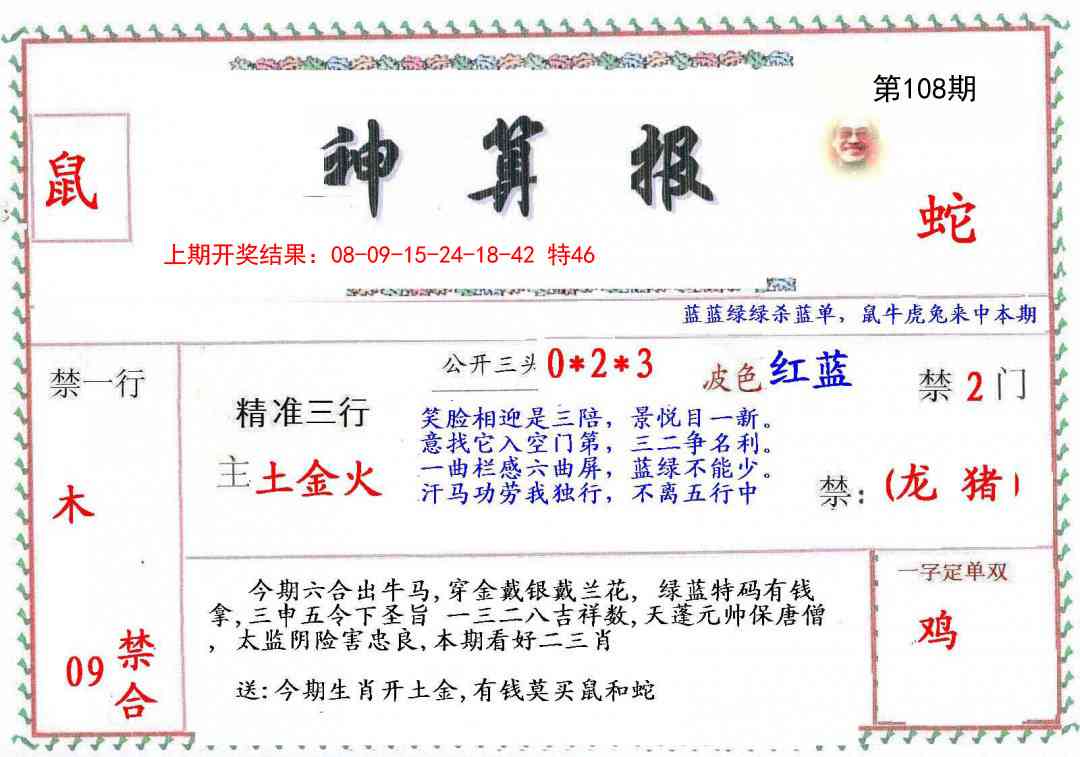 第108期
鼠
神算报
蛇
上期开奖结果：08-09-15-24-18-42 特46
蓝蓝绿绿杀蓝单，鼠牛虎兔来中本期
禁一行
公开三头 0*2*3
波色 红蓝
禁 2 门
精准三行
笑脸相迎是三陪，景悦目一新。
意找它入空门第，三二争名利。
一曲栏感六曲屏，蓝绿不能少。
汗马功劳我独行，不离五行中
主 土金火
禁：(龙 猪)
木
一字定单双
鸡
今期六合出牛马,穿金戴银戴兰花, 绿蓝特码有钱
拿,三申五令下圣旨 一三二八吉祥数,天蓬元帅保唐僧
, 太监阴险害忠良,本期看好二三肖
09 禁合
送:今期生肖开土金,有钱莫买鼠和蛇